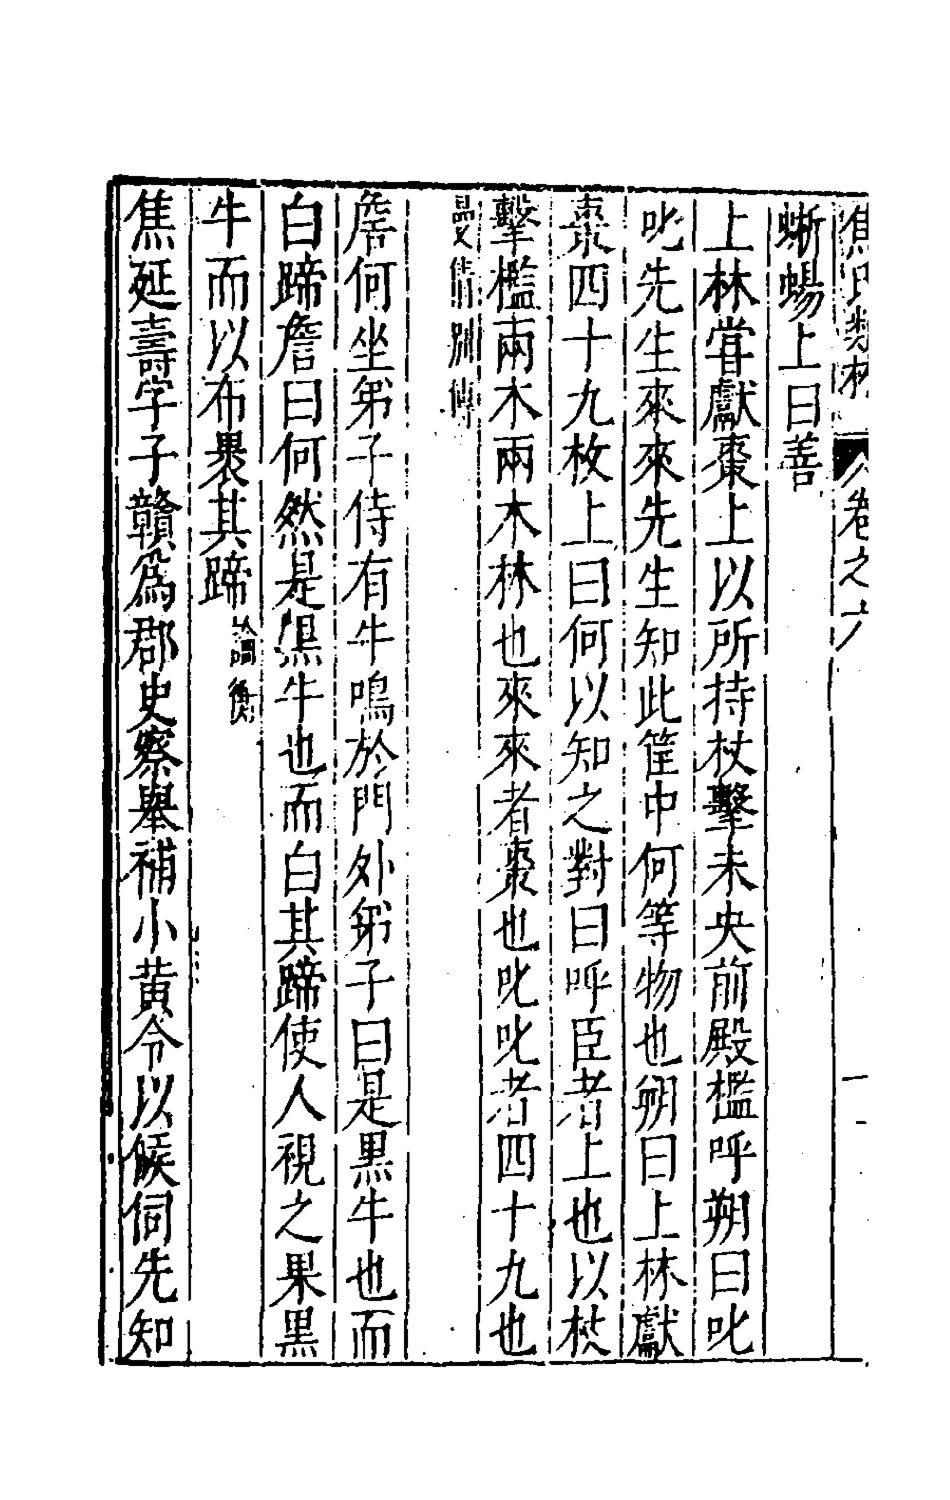 焦氏類林 卷之六
蜥蜴上曰善
上林嘗獻棗上以所持杖擊未央前殿檻呼朔曰叱
叱先生來來先生知此筐中何等物也朔曰上林獻
棗四十九枚上曰何以知之對曰呼臣者上也以杖
擊檻兩木兩木林也來來者棗也叱叱者四十九也
曼倩別傳
詹何坐弟子侍有牛鳴於門外弟子曰是黑牛也而
白蹄詹曰何然是黑牛也而白其蹄使人視之果黑
牛而以布裹其蹄論衡
焦延壽字子贛爲郡史察舉補小黃令以候伺先知